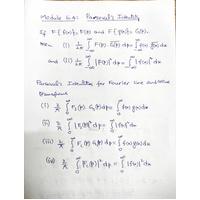 Module 6.4: Parseval's Identity
If F{f(x)} = F(p) and F{g(x)} = G(p).
then (i) 1/2π ∫_{-∞}^{∞} F(p) \overline{G(p)} dp = ∫_{-∞}^{∞} f(x) \overline{g(x)} dx
and (ii) 1/2π ∫_{-∞}^{∞} |F(p)|² dp = ∫_{-∞}^{∞} |f(x)|² dx
Parseval's Identities for Fourier cosine and sine
transforms
(i) 2/π ∫_0^∞ F_c(p) G_c(p) dp = ∫_0^∞ f(x) g(x) dx
(ii) 2/π ∫_0^∞ |F_c(p)|² dp = ∫_0^∞ |f(x)|² dx
(iii) 2/π ∫_0^∞ F_s(p) G_s(p) dp = ∫_0^∞ f(x) g(x) dx
(iv) 2/π ∫_0^∞ |F_s(p)|² dp = ∫_0^∞ |f(x)|² dx